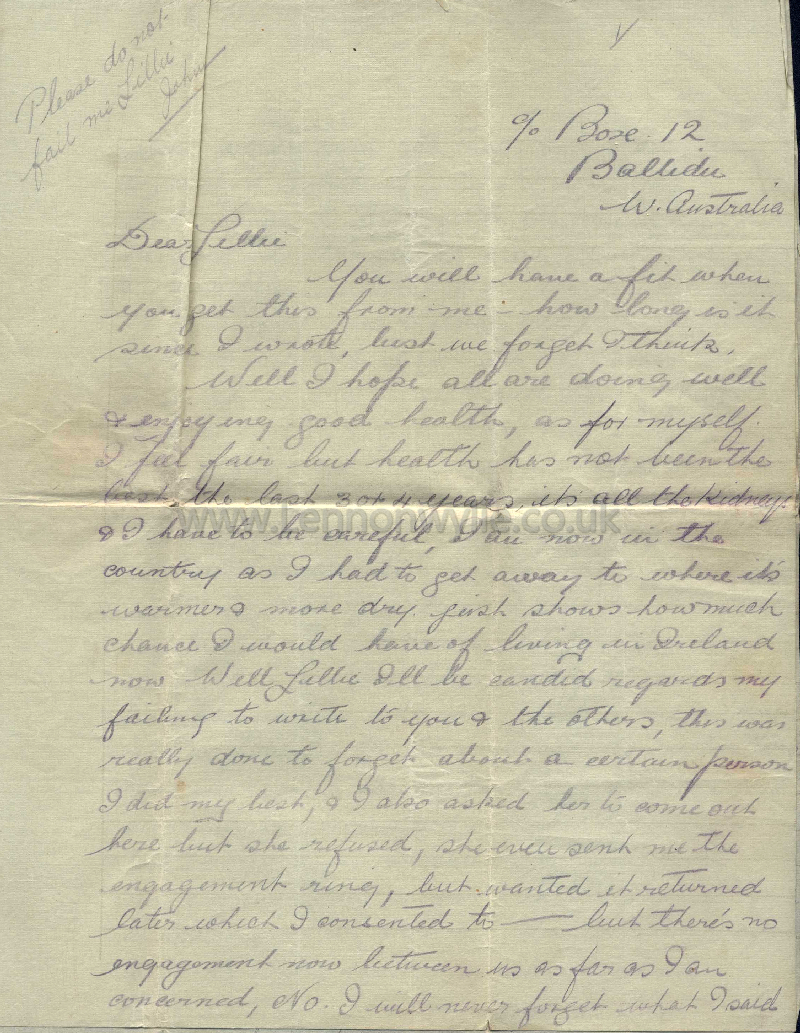 Please do not
fail me Lillie
John
c/o Boxe. 12
Ballidu
W. Australia
Dear Lillie
You will have a fit when
you get this from me - how long is it
since I wrote, lust we forget I think.
Well I hope all are doing well
& enjoying good health, as for myself.
I feel fair but health has not been the
best the last 3 or 4 years, it's all the kidneys
www.lennonwylie.co.uk
& I have to be careful, I am now in the
country as I had to get away to where it's
warmer & more dry. just shows how much
chance I would have of living in Ireland
now Well Lillie I'll be candid regards my
failing to write to you & the others, this was
really done to forget about a certain person
I did my best, & I also asked her to come out
here but she refused, she even sent me the
engagement ring, but wanted it returned
later which I consented to — but there's no
engagement now between us as far as I am
concerned, No. I will never forget what I said